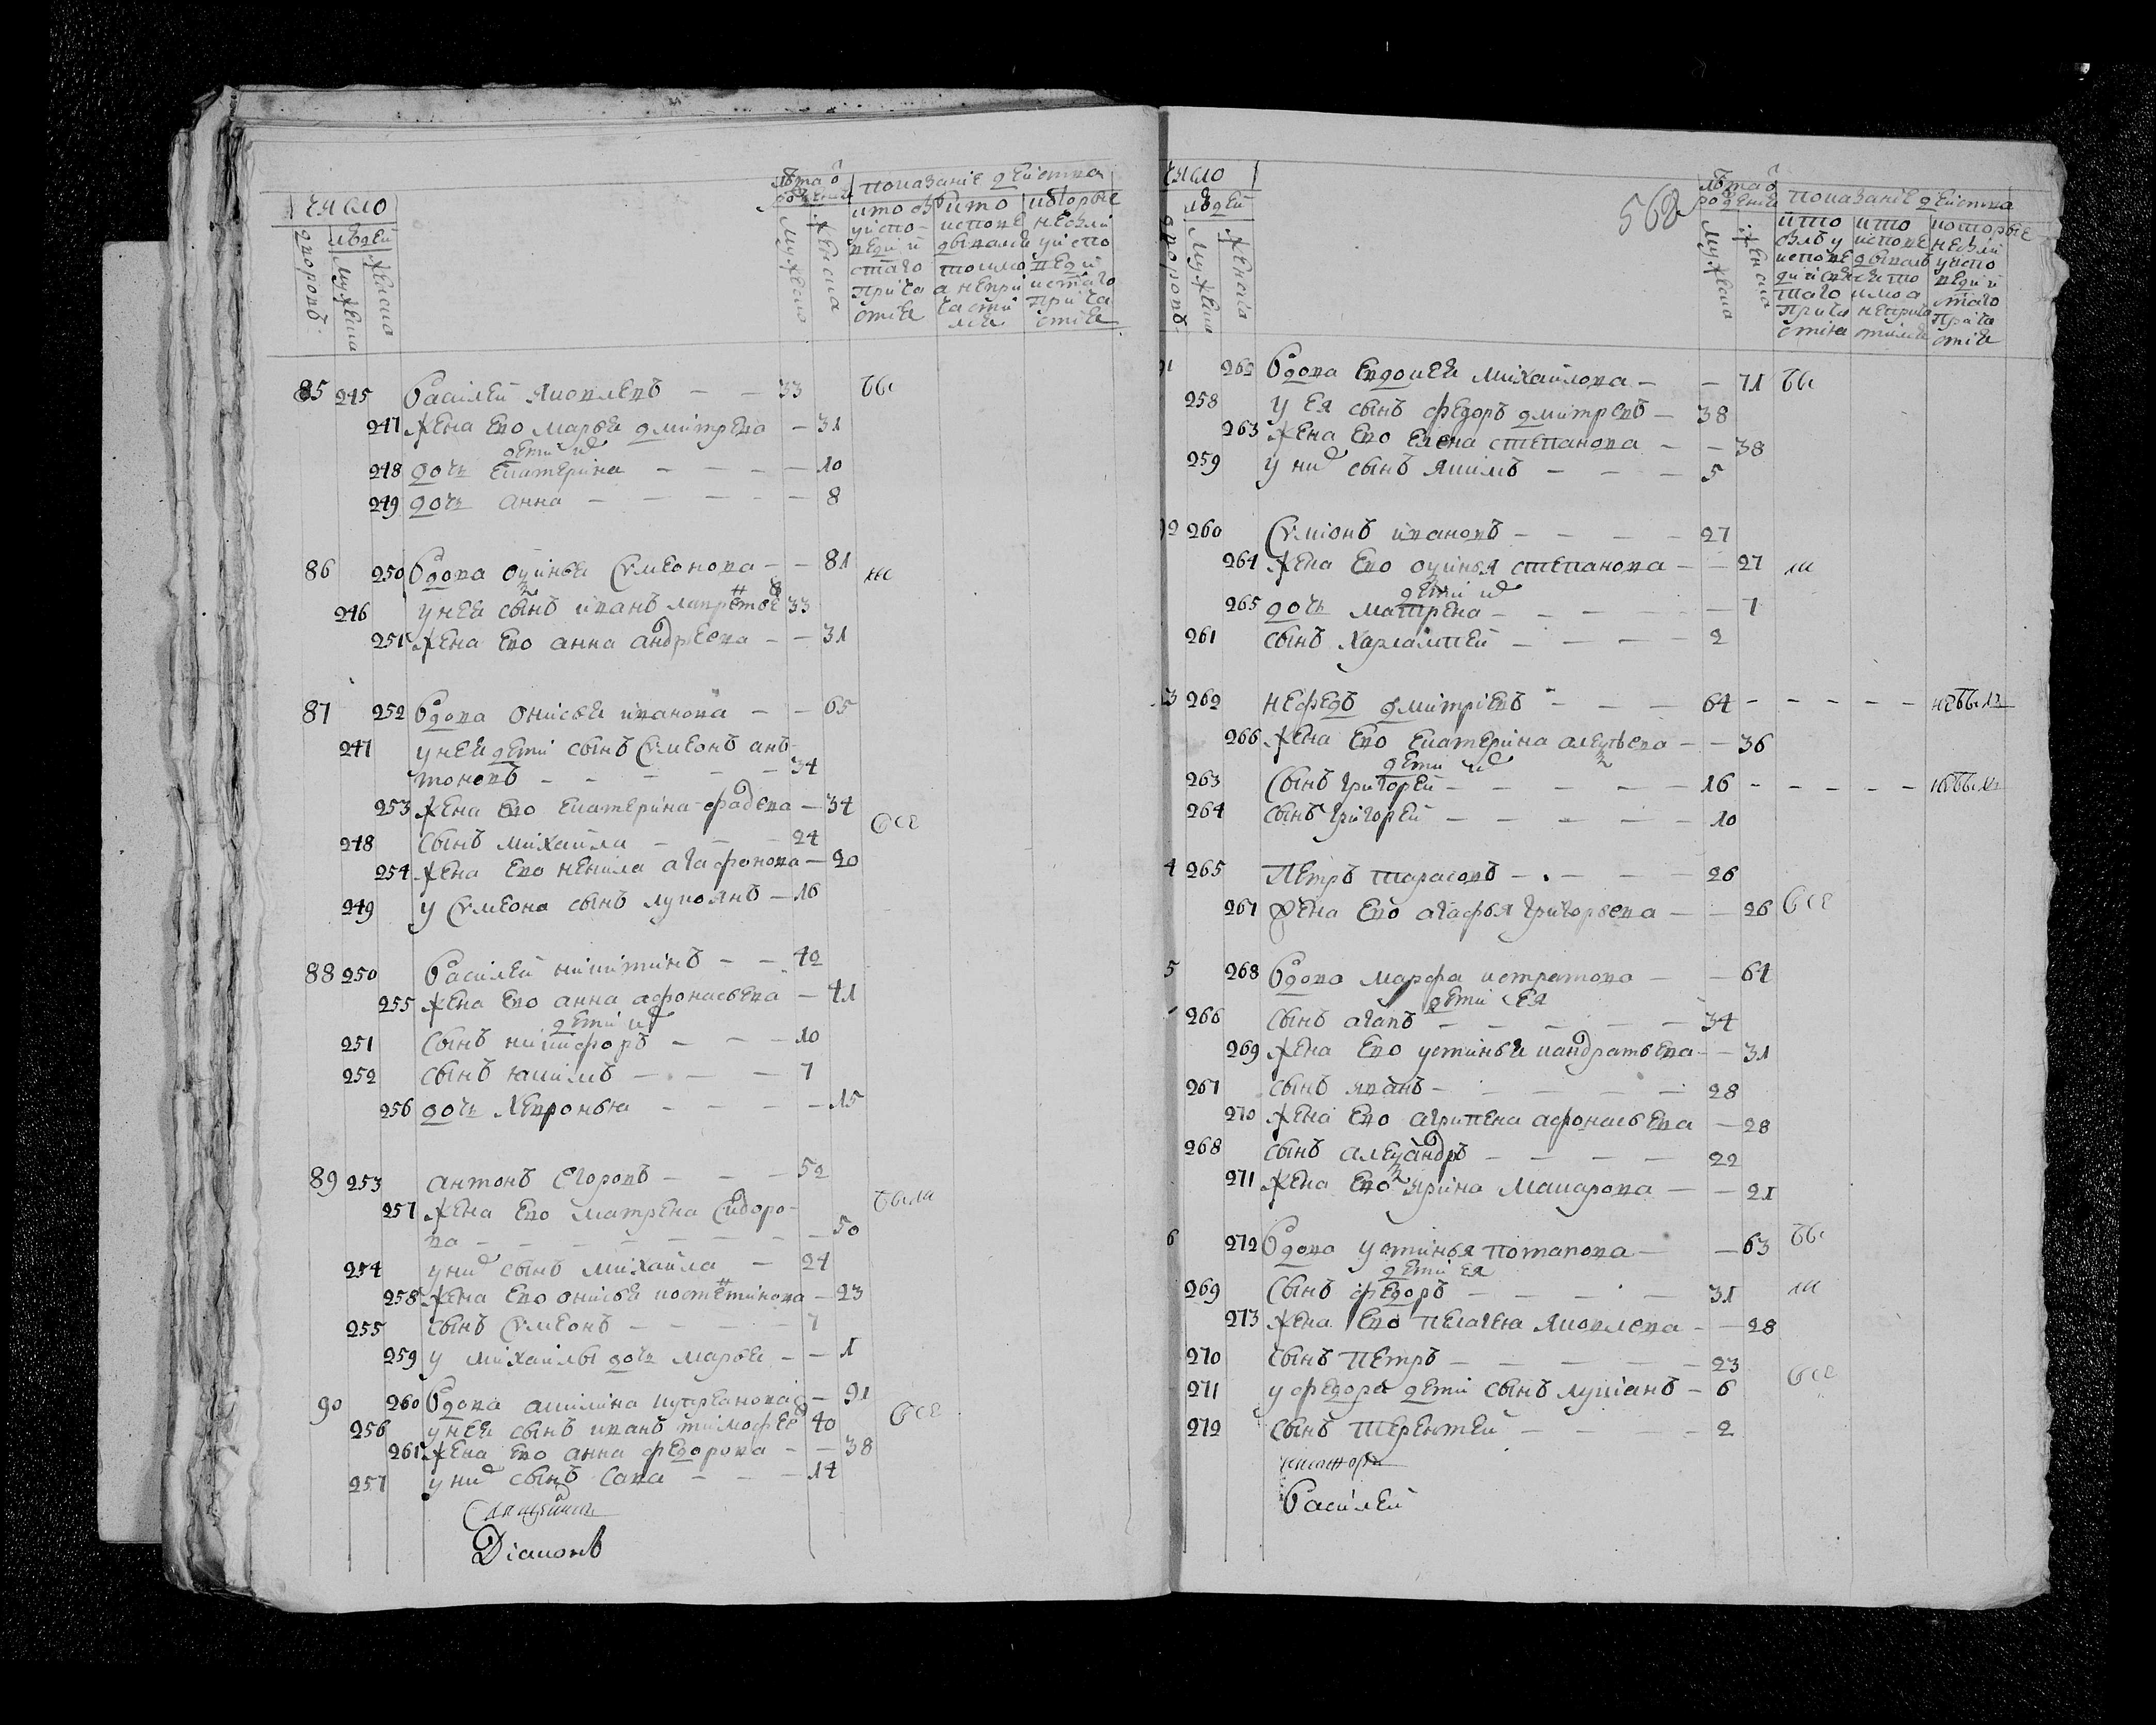 число
людей
дворовъ
мужеска
женска
лѣта от рожденiя
мужеска
женска
показанiе действа
кто бы
у испо-
веди и
стаго
прича
стiя
кто
испове
дывался
токмо
а непри
части
лся
которые
небыли
у испо
веди
и стаго
прича
стiя
85 245 Василей Яковлевъ — — 33 бы
247 жена ево марья дмитрева — 31
дети их
248 дочь екатерина — — — — 10
249 дочь анна — — — — — 8
86 250 Вдова оксинья Сvмеонова — — 81 все
246 у нея сынъ иванъ лаврентьев 33
251 жена ево анна андреева — — 31
87 252 Вдова онисья иванова — — 65
247 у нея дети сынъ Сvмеонъ ан-
тоновъ — — — — — 34
253 жена ево екатерина фадева — 34
все
248 сынъ михайла — — — 24
254 жена ево ненила агафонова — 20
249 у Сvмеона сынъ лукоянъ — 16
88 250 Василей никитинъ — — 42
255 жена ево анна афонасьева — 41
дети их
251 сынъ никифоръ — — — 10
252 сынъ якимъ — — — 7
256 дочь Февронья — — — — 15
89 253 антонъ егоровъ — — — 52
257 жена ево матрена Сидоро-
ва — — — — — — — 50
были
254 у них сынъ михайла — 24
258 жена ево онисья костентинова — 23
255 сынъ Сvмеонъ — — — — 7
259 у михайлы дочь марья — — 1
90 260 Вдова акилина купреянова — 91
256 у нея сынъ иванъ тимофеев 40 все
261 жена ево анна федорова — — 38
257 у них сынъ сава — — — 14
Священник
Дiаконъ
568
число
людей
дворовъ
мужеска
женска
лѣта от
рожденiя
мужеска
женска
показанiе действа
кто
былъ у
испове
ди и свя
таго
прича
стiя
кто
испове
дывалъ
ся то
кмо а
неприча
стился
которые
небыли
у испо
веди и
стаго
прича
стiя
91 262 Вдова евдокея михайлова — — 71 бы
258 у ея сынъ федоръ дмитревъ — 38
263 жена ево елена степанова — — 38
259 у них сынъ якимъ — — — 5
92 260 Сvмiонъ ивановъ — — — — 27
264 жена ево оксинья степанова — — 27 ли
дети их
265 дочь матрена — — — — — 7
261 сынъ харлампей — — — — 2
93 262 нефедъ дмитрiевъ — — — 64 - - - - - небылъ
266 жена ево екатерина алексѣева — — 36
дети их
263 Сынъ григорей — — — — — 16 - - - - - небылъ
264 сынъ григорей — — — — — 10
94 265 Петръ тарасовъ — — — — 26
267 жена ево агафья григорьева — — 26 все
95 268 Вдова марфа истратова — — 64
дети ея
266 сынъ агапъ — — — — — 34
269 жена ево устинья кандратьева — — 31
267 сынъ иванъ — — — — — 28
270 жена ево агрипена афонасьева — 28
268 сынъ александръ — — — — 22
271 жена ево ярина макарова — — 21
96 272 Вдова устинья потапова — — 63 бы
дети ея
269 Сынъ федоръ — — — — 31 ли
273 жена ево пелагея яковлева — — 28
270 сынъ петръ — — — — — 23
271 у федора дети сынъ лукiанъ — 6 все
272 сынъ терентей — — — — 2
пономорь
Василей